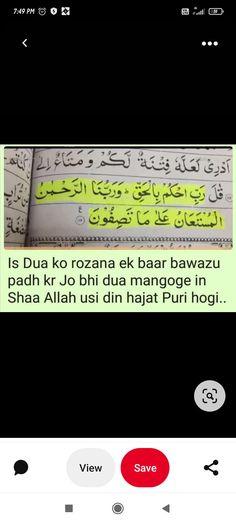 7:49 PM
أَدْرِي لَعَلَّهُ فِتْنَةٌ لَّكُمْ وَمَتَاعٌ إِلَىٰ
قٰلَ رَبِّ احْكُم بِالْحَقِّ وَرَبُّنَا الرَّحْمٰنُ
الْمُسْتَعَانُ عَلَىٰ مَا تَصِفُونَ
Is Dua ko rozana ek baar bawazu
padh kr Jo bhi dua mangoge in
Shaa Allah usi din hajat Puri hogi..
View
Save